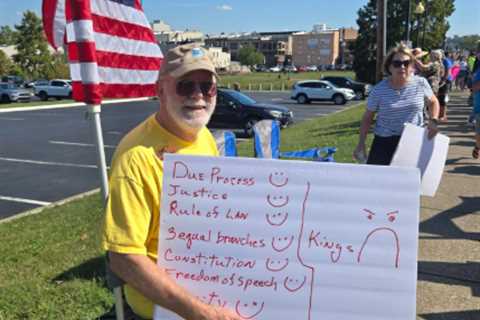 Due Process
Justice
Rule of Law
3 equal branches
Constitution
Freedom of Speech
Kings